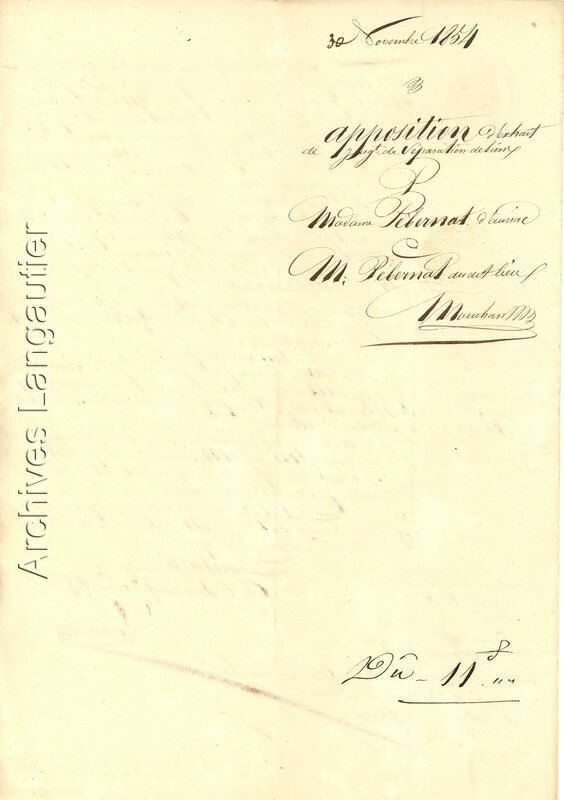 30 Novembre 1854
apposition d'extrait
de Jugt. de Séparation de biens
P
Madame Pébernat d'auriac
C
M. Pébernat du dit lieu
Dû - 11 f "
Archives Langautier